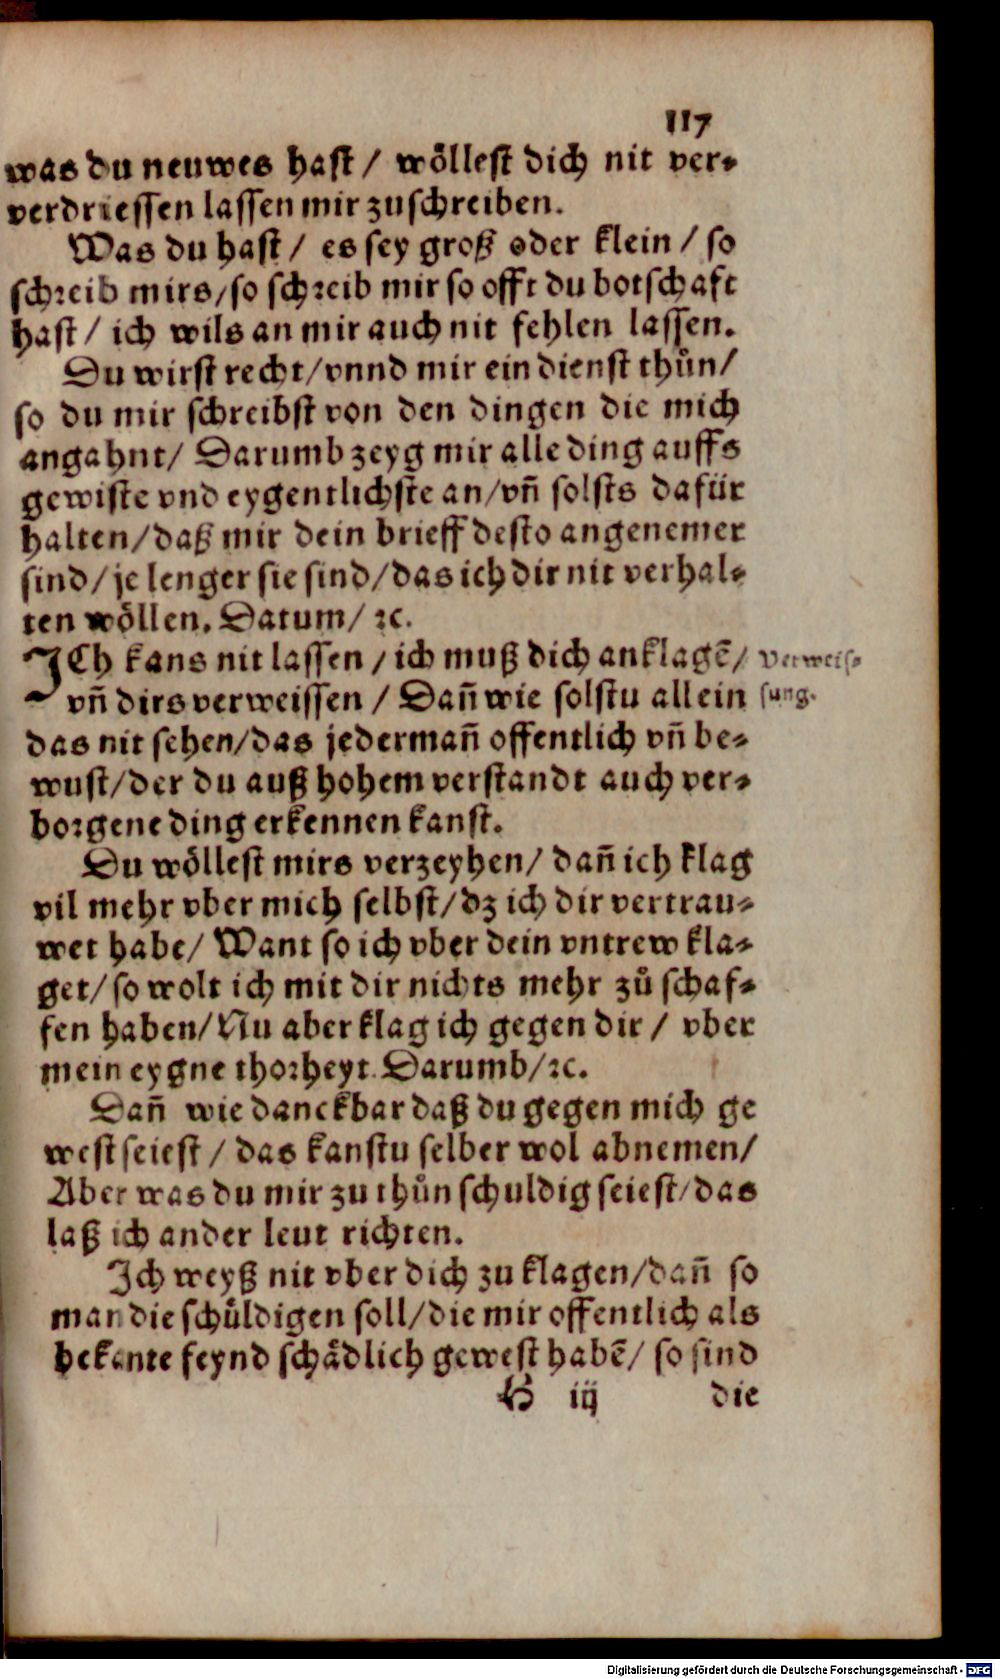 117
was du neuwes hast / wöllest dich nit ver⸗
verdriessen lassen mir zuschreiben.
Was du hast / es sey groß oder klein / so
schreib mirs / so schreib mir so offt du botschaft
hast / ich wils an mir auch nit fehlen lassen.
Du wirst recht / vnnd mir ein dienst thůn /
so du mir schreibst von den dingen die mich
angahnt / Darumb zeyg mir alle ding auffs
gewiste vnd eygentlichste an / vñ solsts dafür
halten / daß mir dein brieff desto angenemer
sind / je lenger sie sind / das ich dir nit verhal⸗
ten wöllen. Datum / ꝛc.
ICh kans nit lassen / ich muß dich anklagẽ / verweis⸗
vñ dirs verweissen / Dañ wie solstu allein sung.
das nit sehen / das jedermañ offentlich vñ be⸗
wust / der du auß hohem verstandt auch ver⸗
borgene ding erkennen kanst.
Du wöllest mirs verzeyhen / dañ ich klag
vil mehr vber mich selbst / dz ich dir vertrau⸗
wet habe / Want so ich vber dein vntrew kla⸗
get / so wolt ich mit dir nichts mehr zů schaf⸗
fen haben / Nu aber klag ich gegen dir / vber
mein eygne thorheyt. Darumb / ꝛc.
Dañ wie danckbar daß du gegen mich ge
west seiest / das kanstu selber wol abnemen /
Aber was du mir zu thůn schuldig seiest / das
laß ich ander leut richten.
Ich weyß nit vber dich zu klagen / dañ so
man die schůldigen soll / die mir offentlich als
bekante feynd schädlich gewest habẽ / so sind
H iij die
Digitalisierung gefördert durch die Deutsche Forschungsgemeinschaft - DFG